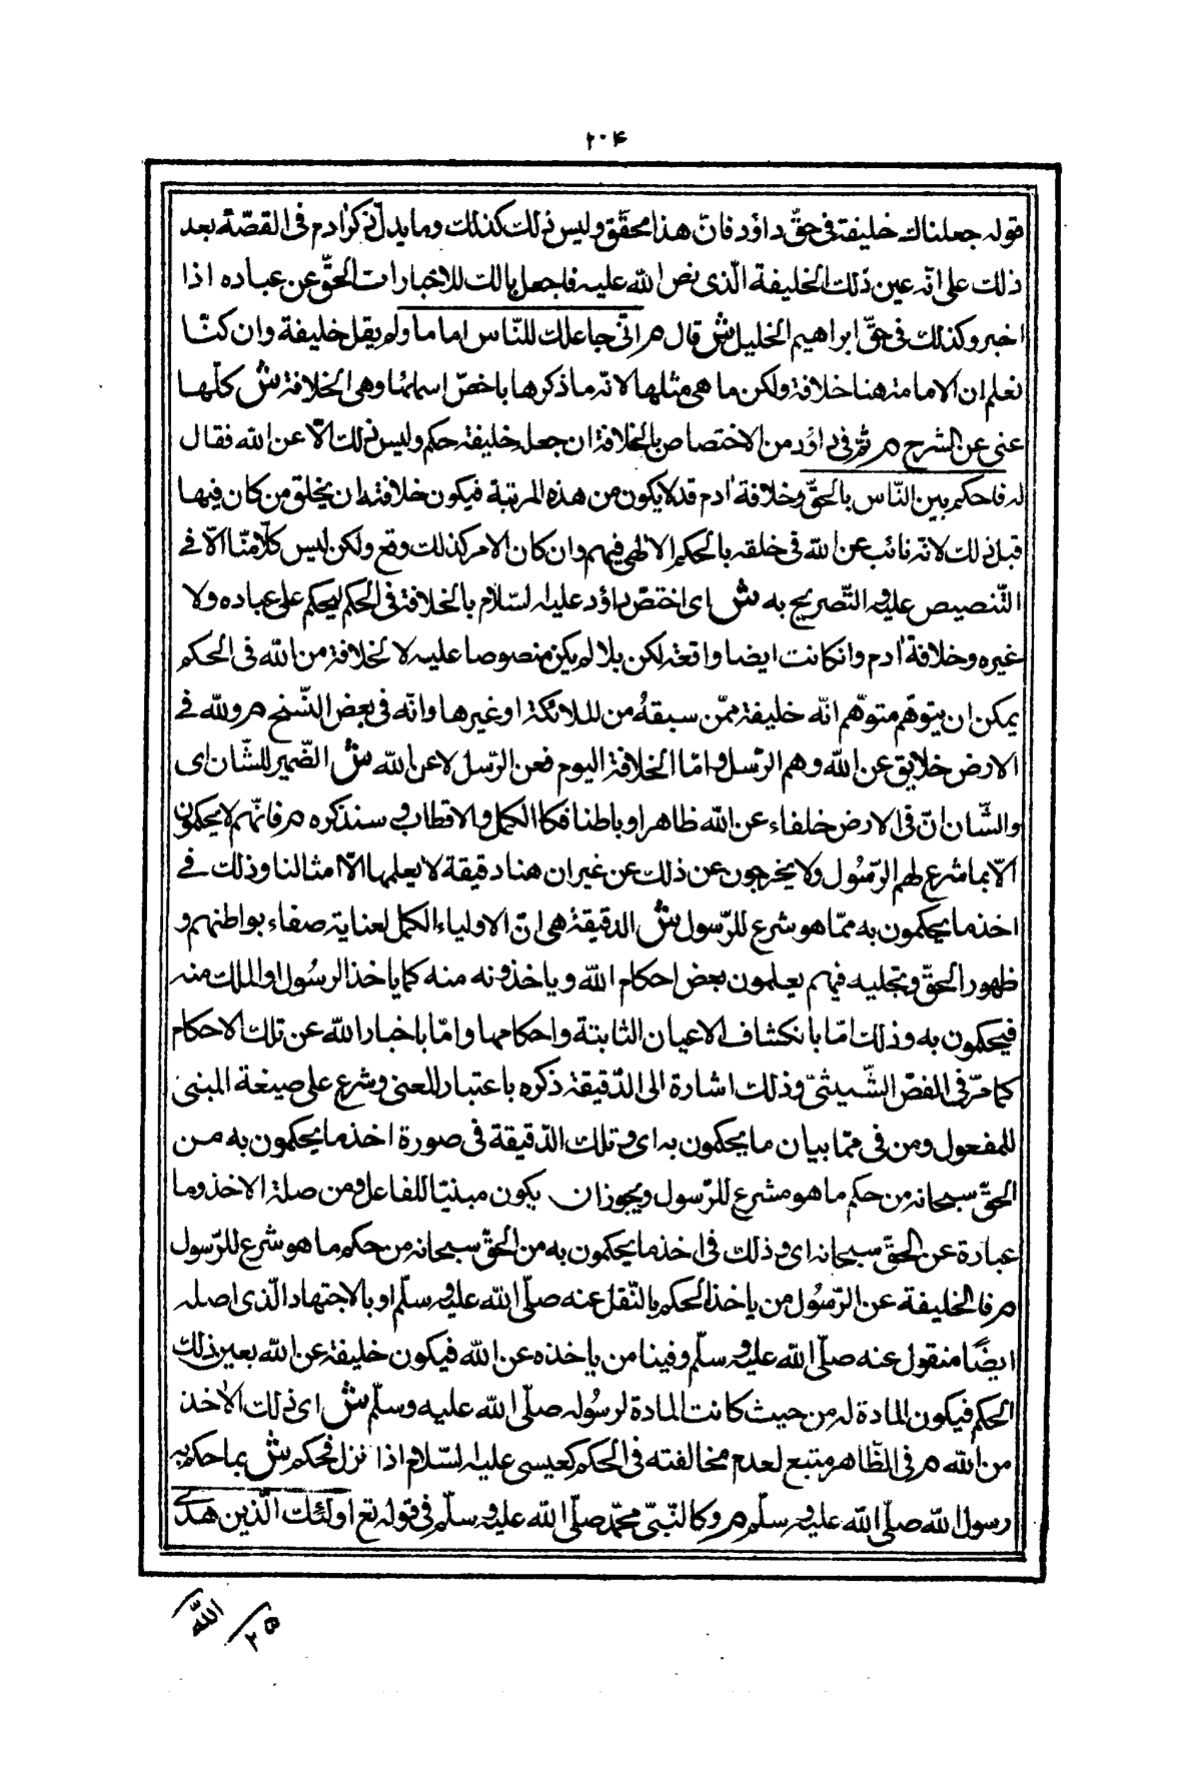 ۲۰۴
قوله جعلناك خليفة فى حقّ داؤد فانّ هذا محقّق وليس ذلك كذلك وما يدلّ ذكر ادم فى القصّة بعد
ذلك على انّه عين ذلك الخليفة الّذى نص الله عليه فاجعل بالك للاخبارات الحقّ عن عباده اذا
اخبر وكذلك فى حقّ ابراهيم الخليل ش قال م انّى جاعلك للنّاس اماما ولم يقل خليفة وان كنّا
نعلم ان الامامة هنا خلافة ولكن ما هى مثلها لانّه ما ذكرها باخصّ اسمائها وهى الخلافة ش كلّها
غنى عن الشرح م ثمّ فى داؤد من الاختصاص بالخلافة ان جعله خليفة حكم وليس ذلك الّا عن الله فقال
له فاحكم بين النّاس بالحقّ وخلافة ادم قد لا يكون من هذه المرتبة فيكون خلافته ان يخلق من كان فيها
قبل ذلك لا انّه نائب عن الله فى خلقه بالحكم الالهى فيهم وان كان الامر كذلك وقع ولكن ليس كلامنا الّا فے
التّنصيص عليه والتّصريح به ش اى اختصّ داؤد عليه السّلام بالخلافة فى الحكم ليحكم على عباده ولا
غيره وخلافة ادم وان كانت ايضا واقعة لكن بلا لم يكن منصوصا عليه لا لخلافة من الله فى الحكم
يمكن ان يتوهّم متوهّم انّه خليفة ممّن سبقهُ من الملائكة او غيرها وانّه فى بعض النّسخ م ولله فے
الارض خلايق عن الله وهم الرّسل وامّا الخلافة اليوم فعن الرّسل لا عن الله ش الضّمير للشّان اى
والشّان انّ فى الارض خلفاء عن الله ظاهرا وباطنا فكا الكمل والاقطاب وسنذكره م فانّهم لا يحكمون
الّا بما شرع لهم الرّسُول ولا يخرجون عن ذلك عن غير ان هنا دقيقة لا يعلمها الّا امثالنا وذلك فے
اخذ ما يحكمون به ممّا هو شرع للرّسول ش الدقيقة هى انّ الاولياء الكمل لعناية صفاء بواطنهم و
ظهور الحقّ وتجليه فيهم يعلمون بعض احكام الله وياخذونه منه كما ياخذ الرسُول او الملك منه
فيحكمون به وذلك امّا بانكشاف الاعيان الثابتة واحكامها وامّا باخبار الله عن تلك الاحكام
كما مرّ فى الفصّ الشّيثىّ وذلك اشارة الى الدّقيقة ذكره باعتبار المعنى وشرع على صيغة المبنى
للمفعول ومن فى ممّا بيان ما يحكمون به اى وتلك الدّقيقة فى صورة اخذ ما يحكمون به من
الحقّ سبحانه من حكم ما هو مشرع للرّسول ويجوز ان يكون مبنيّا للفاعل ومن صلة الاخذ وما
عبارة عن الحقّ سبحانه اى وذلك فى اخذ ما يحكمون به من الحقّ سبحانه من حكم ما هو شرع للرّسول
م فالخليفة عن الرّسُول من ياخذ الحكم بالنّقل عنه صلّى الله عليه وسلّم او بالاجتهاد الّذى اصله
ايضًا منقول عنه صلّى الله عليه وسلّم وفينا من ياخذه عن الله فيكون خليفة عن الله بعين ذلك
الحكم فيكون المادة له من حيث كانت المادة لرسُوله صلّى الله عليه وسلّم ش اى ذلك الاخذ
من الله م فى الظّاهر متبع لعدم مخالفته فى الحكم كعيسى عليه السّلام اذا نزل فحكم ش بما حكم به
رسول الله صلّى الله عليه وسلّم م وكالنّبىّ محمّد صلّى الله عليه وسلّم فى قوله تع اولئك الّذين هدى
الله